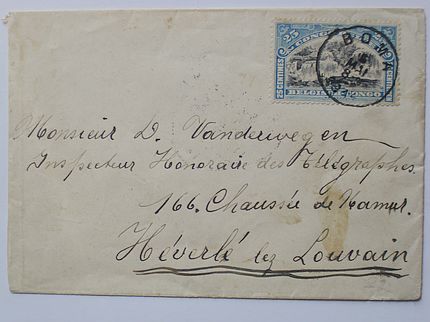 25
25
CENTIMES
BELGI
CONGO
BOMA
Monsieur D. Vanderwegen
Inspecteur Honoraire des Télégraphes.
166. Chaussée de Namur.
Héverlé lez Louvain